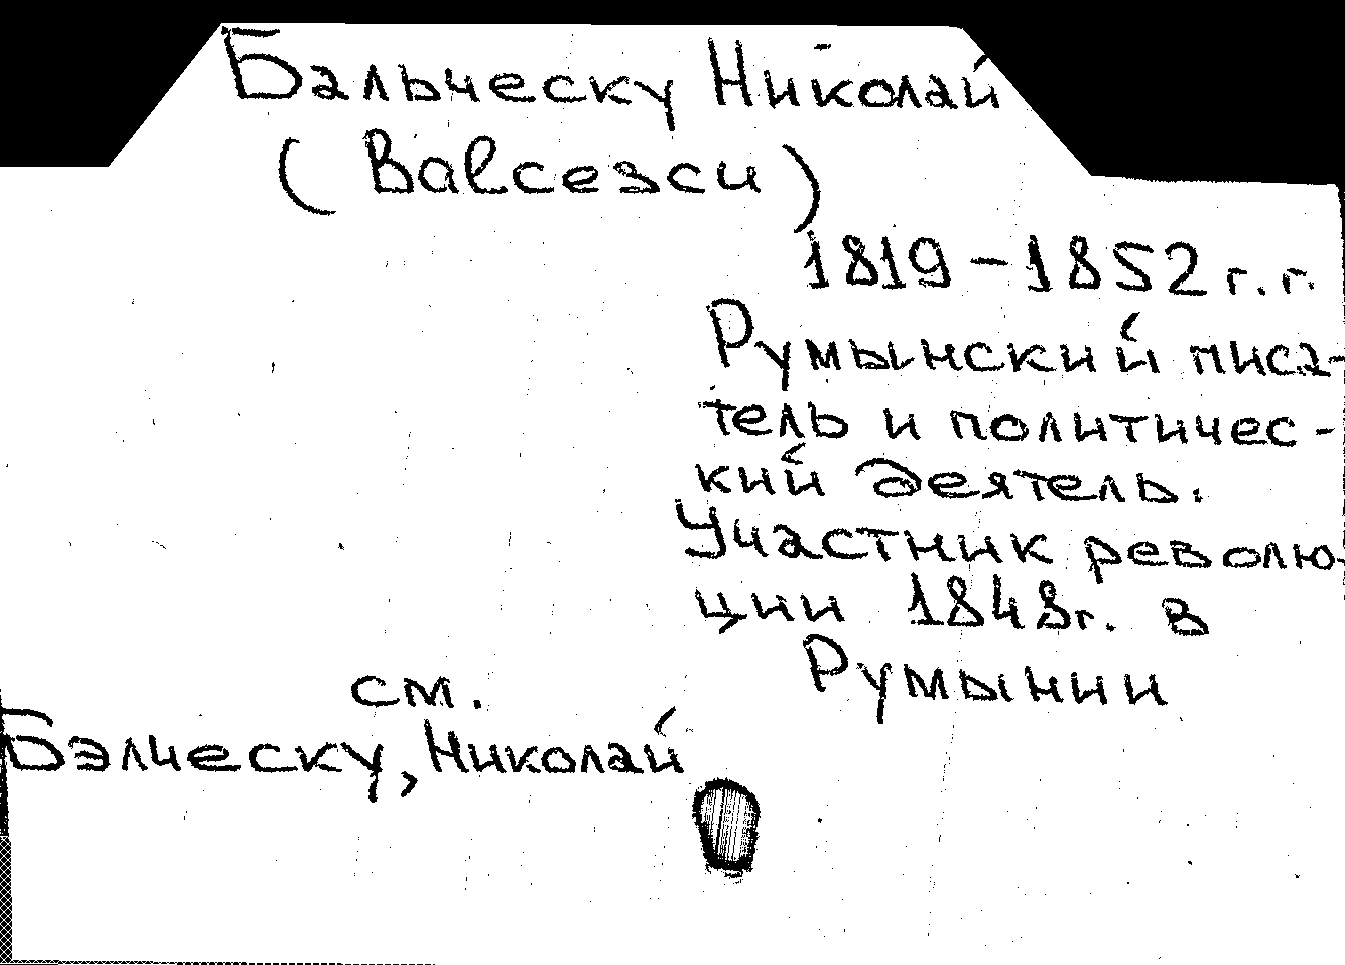 Бальческу Николай
(Balcesзcu)
1819-1852 г.г.
Румынский писа-
тель и политичес-
кий деятель.
Участник револю-
ции 1848г. в
Румынии
см.
Бэлческу, Николай